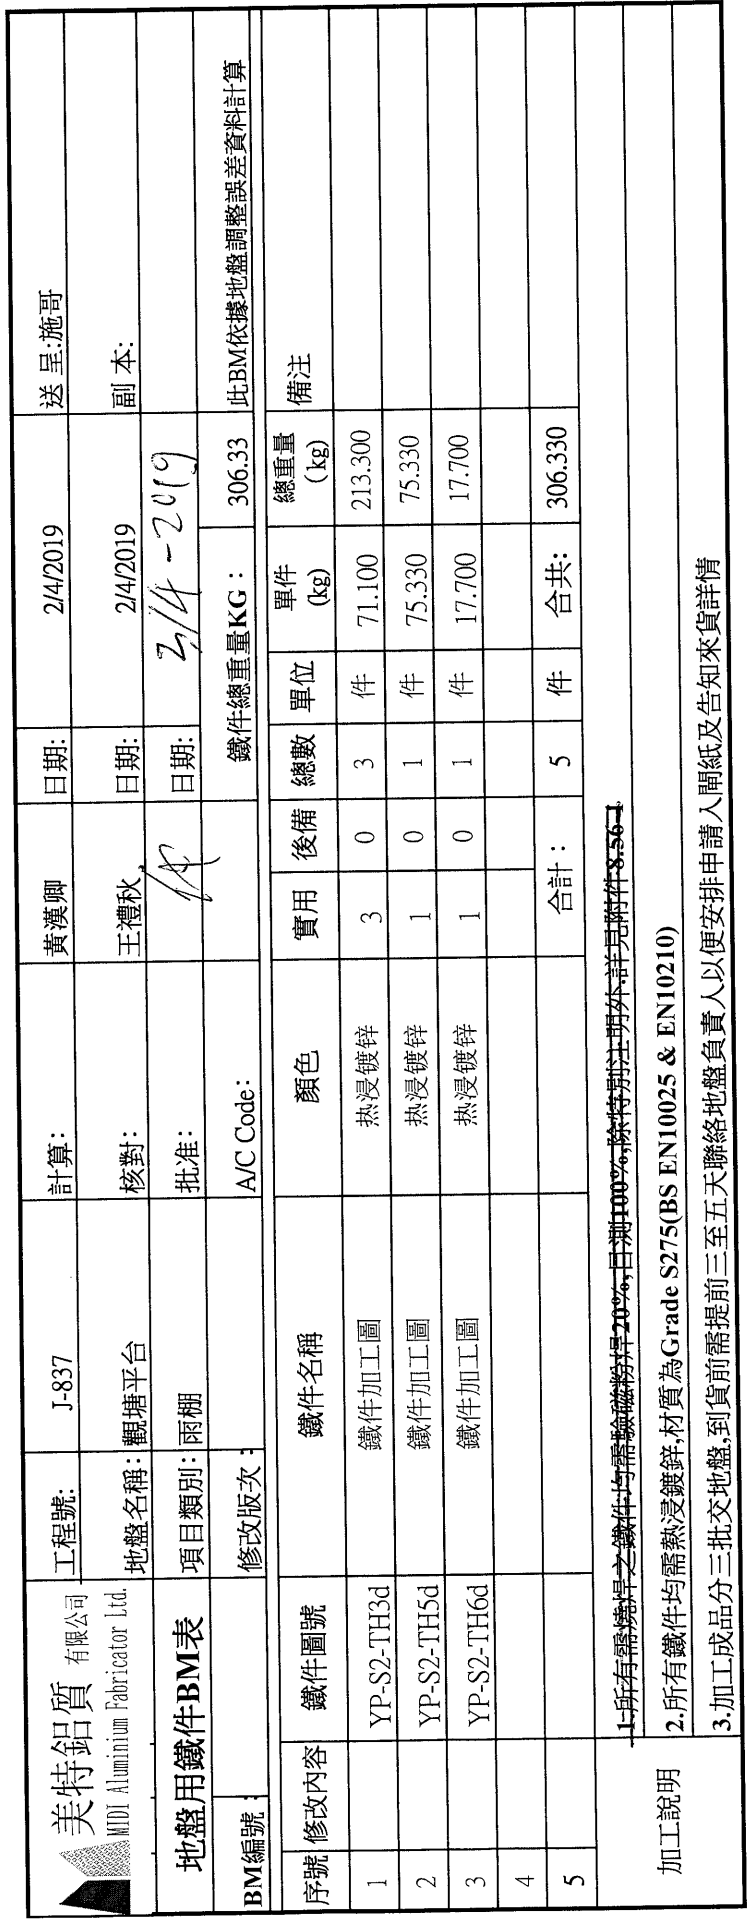 美特鋁質 有限公司
MIDI Aluminium Fabricator Ltd.
工程號: J-837 計算: 黃漢卿 日期: 2/4/2019 送 呈:施哥
地盤名稱: 觀塘平台 核對: 王禮秋 日期: 2/4/2019 副 本:
地盤用鐵件BM表 項目類別: 雨棚 批准: 日期: 3/4-2019
BM編號: 修改版次: A/C Code: 鐵件總重量KG: 306.33 此BM依據地盤調整誤差資料計算
序號 修改內容 鐵件圖號 鐵件名稱 顏色 實用 後備 總數 單位 單件 (kg) 總重量 (kg) 備注
1 YP-S2-TH3d 鐵件加工圖 热浸镀锌 3 0 3 件 71.100 213.300
2 YP-S2-TH5d 鐵件加工圖 热浸镀锌 1 0 1 件 75.330 75.330
3 YP-S2-TH6d 鐵件加工圖 热浸镀锌 1 0 1 件 17.700 17.700
4
5 合計: 5 件 合共: 306.330
加工說明
1.所有需燒焊之鐵件均需驗磁粉焊20%,目測100%,除特別注明外.詳見附件8.56-1
2.所有鐵件均需熱浸鍍鋅,材質為Grade S275(BS EN10025 & EN10210)
3.加工成品分三批交地盤,到貨前需提前三至五天聯絡地盤負責人以便安排申請入閘紙及告知來貨詳情